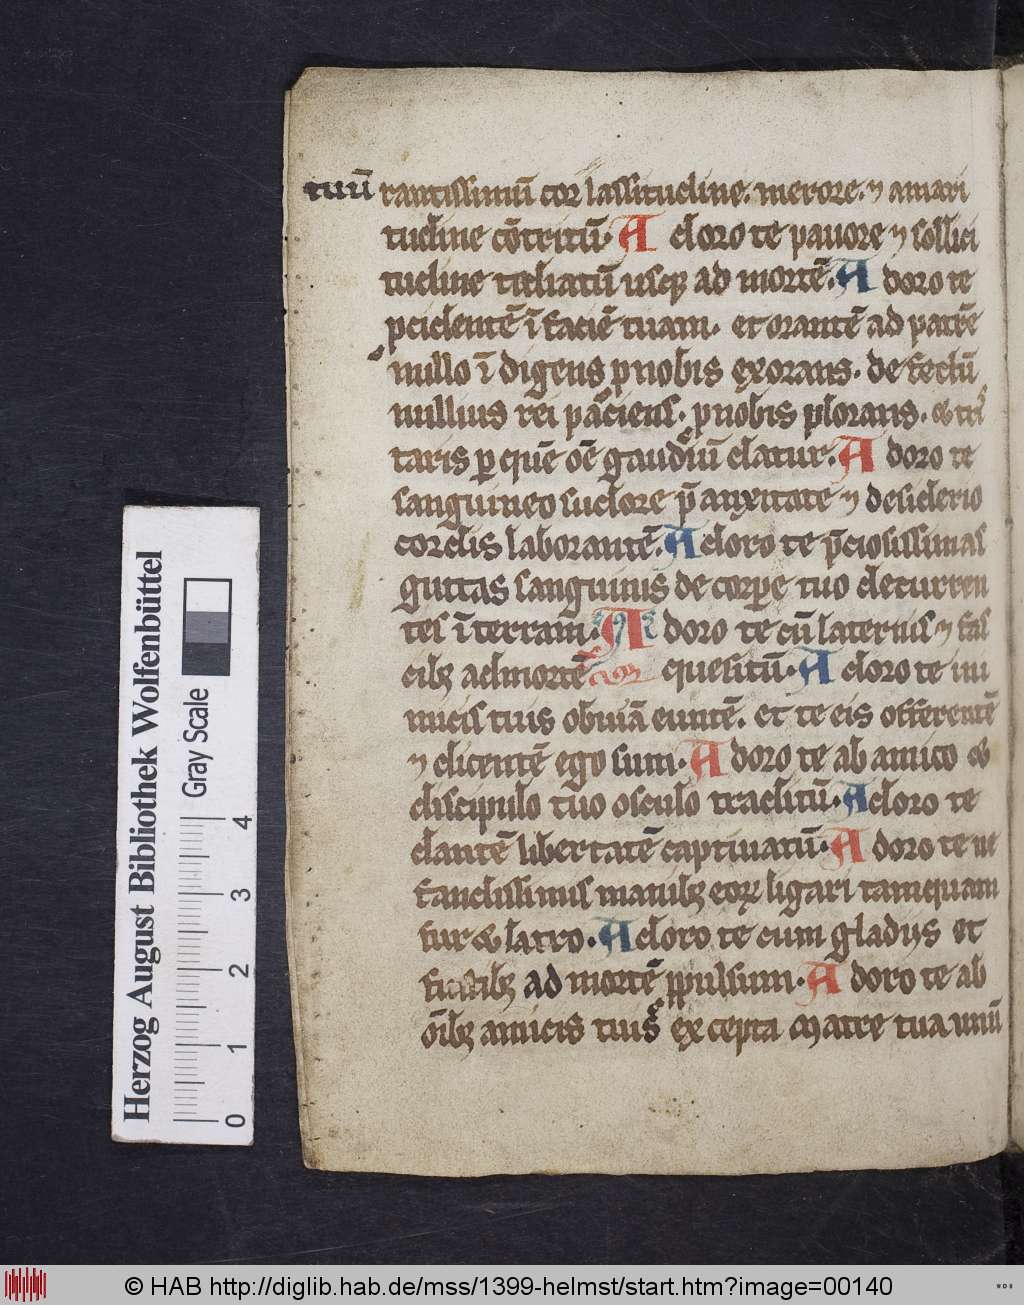 tuū tantissimū cor lassitudine. merore. ⁊ amari
tudine cōtritū. A doro te pauore ⁊ sollici
tudine tediatū usqꝫ ad mortē. A doro te
pcidentē ī faciē tuam. et orantē ad patrē
nullo īdigens pnobis exorans. de fectū
nullius rei paciens. pnobis plorans. &
taris p quē oē gaudiū datur. A doro te
sanguineo sudore p̄ anxitate ⁊ desiderio
cordis laborantē. A doro te p̄ciosissimas
guttas sanguinis de corpe tuo decurren
tes ī terram. A doro te cū laternis ⁊ fas
cibꝫ admortē quesitū. A doro te ini
micis tuis obuiā euntē. et te eis offerentē
⁊ dicentē ego sum. A doro te ab amico &
discipulo tuo osculo traditū. A doro te
dantē libertatē captiuatū. A doro te ne
fandissimis manibꝫ eoꝝ ligari tamquam
fur & latro. A doro te cum gladijs et
fustibꝫ ad mortē ppulsum. A doro te ab
oībꝫ amicis tuis excepta matre tua unū
Herzog August Bibliothek Wolfenbüttel
Gray Scale
0 1 2 3 4
© HAB http://diglib.hab.de/mss/1399-helmst/start.htm?image=00140